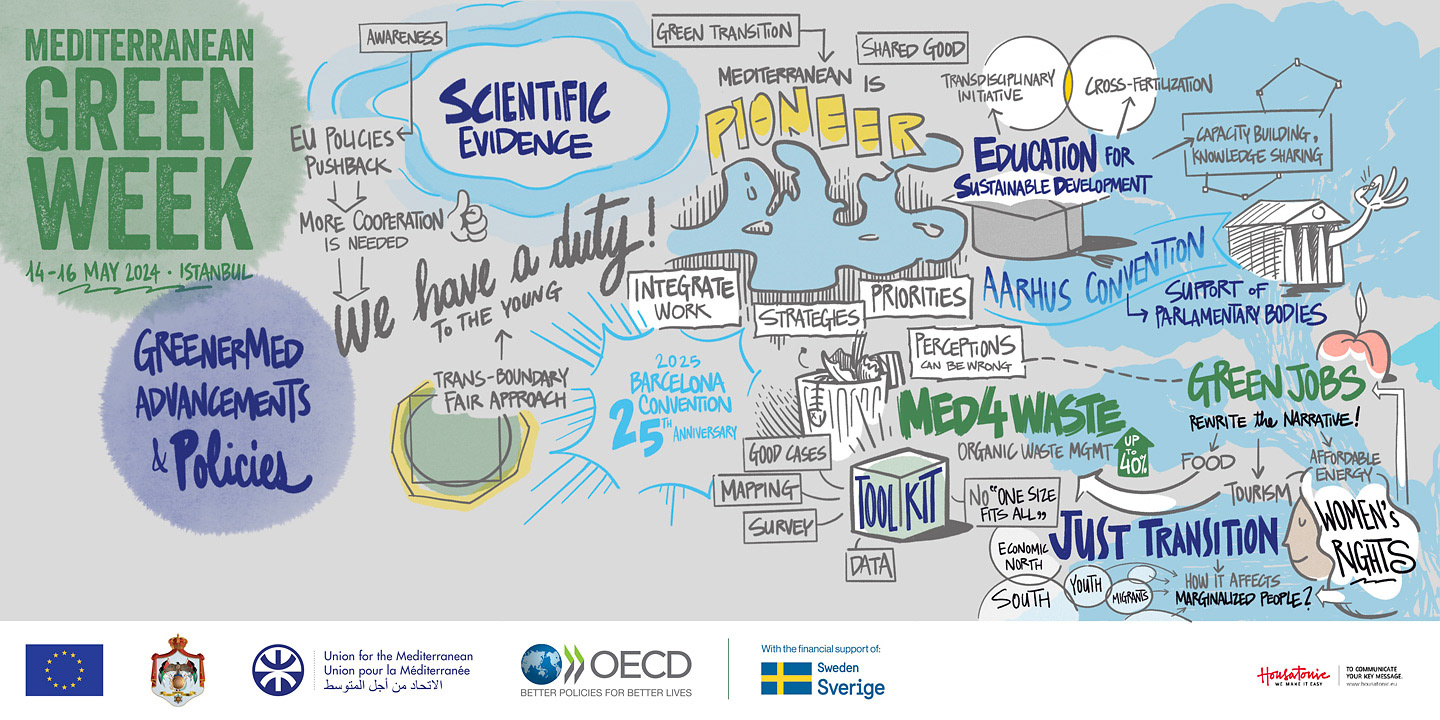 MEDITERRANEAN
GREEN
WEEK
14-16 MAY 2024 · ISTANBUL
GREENERMED
ADVANCEMENTS
& Policies
AWARENESS
EU POLICIES
PUSHBACK
MORE COOPERATION
IS NEEDED
SCIENTIFIC
EVIDENCE
We have a duty!
TO THE YOUNG
TRANS-BOUNDARY
FAIR APPROACH
GREEN TRANSITION
SHARED GOOD
MEDITERRANEAN IS
PIONEER
INTEGRATE
WORK
STRATEGIES
PRIORITIES
2025
BARCELONA
CONVENTION
25TH ANNIVERSARY
TRANSDISCIPLINARY
INITIATIVE
CROSS-FERTILIZATION
EDUCATION FOR
SUSTAINABLE DEVELOPMENT
CAPACITY BUILDING,
KNOWLEDGE SHARING
AARHUS CONVENTION
SUPPORT OF
PARLAMENTARY BODIES
PERCEPTIONS
CAN BE WRONG
MED4WASTE
ORGANIC WASTE MGMT
UP
TO
40%
GOOD CASES
MAPPING
SURVEY
DATA
TOOLKIT
NO "ONE SIZE
FITS ALL"
GREEN JOBS
REWRITE the NARRATIVE!
FOOD
TOURISM
AFFORDABLE
ENERGY
JUST TRANSITION
WOMEN'S
RIGHTS
ECONOMIC
NORTH
SOUTH
YOUTH
MIGRANTS
HOW IT AFFECTS
MARGINALIZED PEOPLE?
Union for the Mediterranean
Union pour la Méditerranée
الاتحاد من أجل المتوسط
OECD
BETTER POLICIES FOR BETTER LIVES
With the financial support of:
Sweden
Sverige
Housatonic
WE MAKE IT EASY
TO COMMUNICATE
YOUR KEY MESSAGE.
www.housatonic.eu